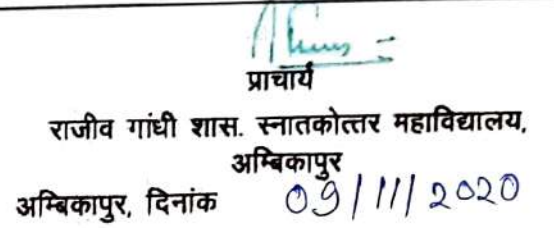 प्राचार्य
राजीव गांधी शास. स्नातकोत्तर महाविद्यालय,
अम्बिकापुर
अम्बिकापुर, दिनांक 09/11/2020